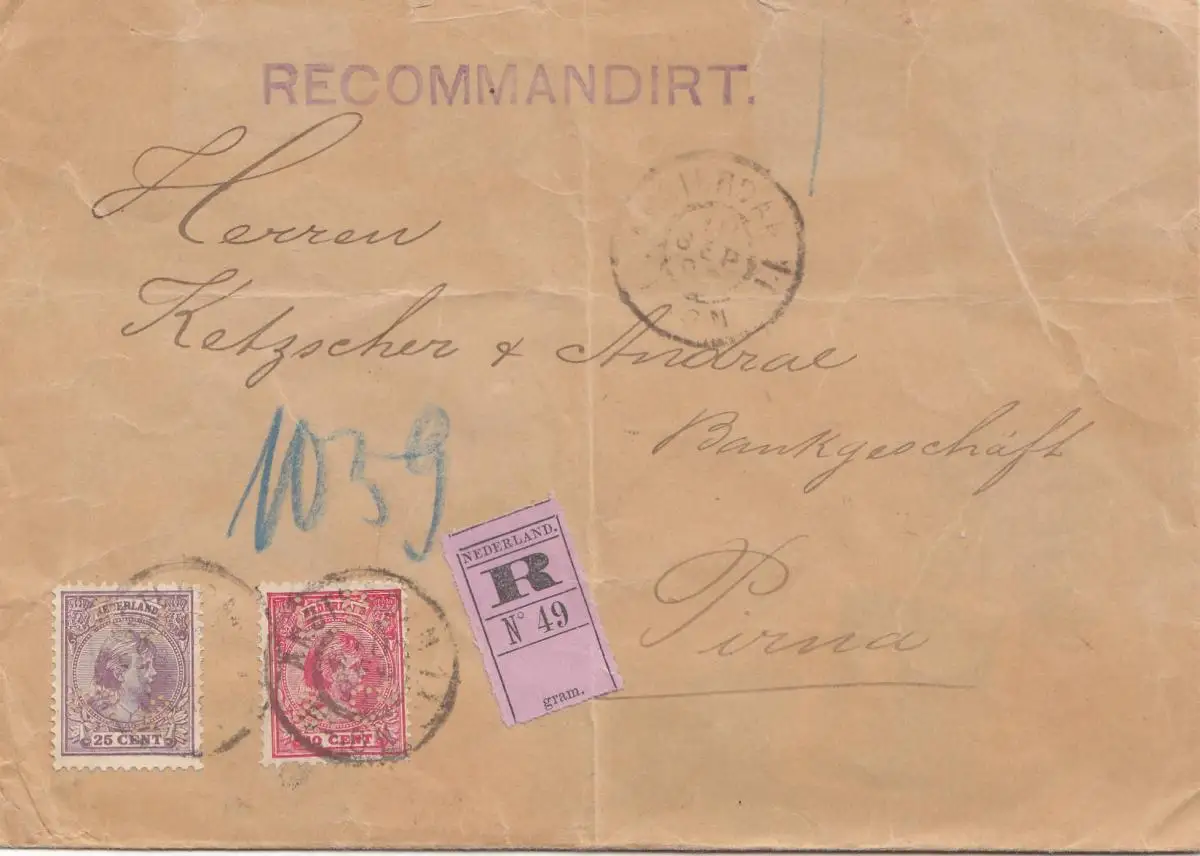 RECOMMANDIRT.
Herren
Ketzscher & Andrae
Bankgeschäft
Pirna
1039
SEP
NEDERLAND.
R
N° 49
gram.
NEDERLAND
25 CENT
NEDERLAND
10 CENT